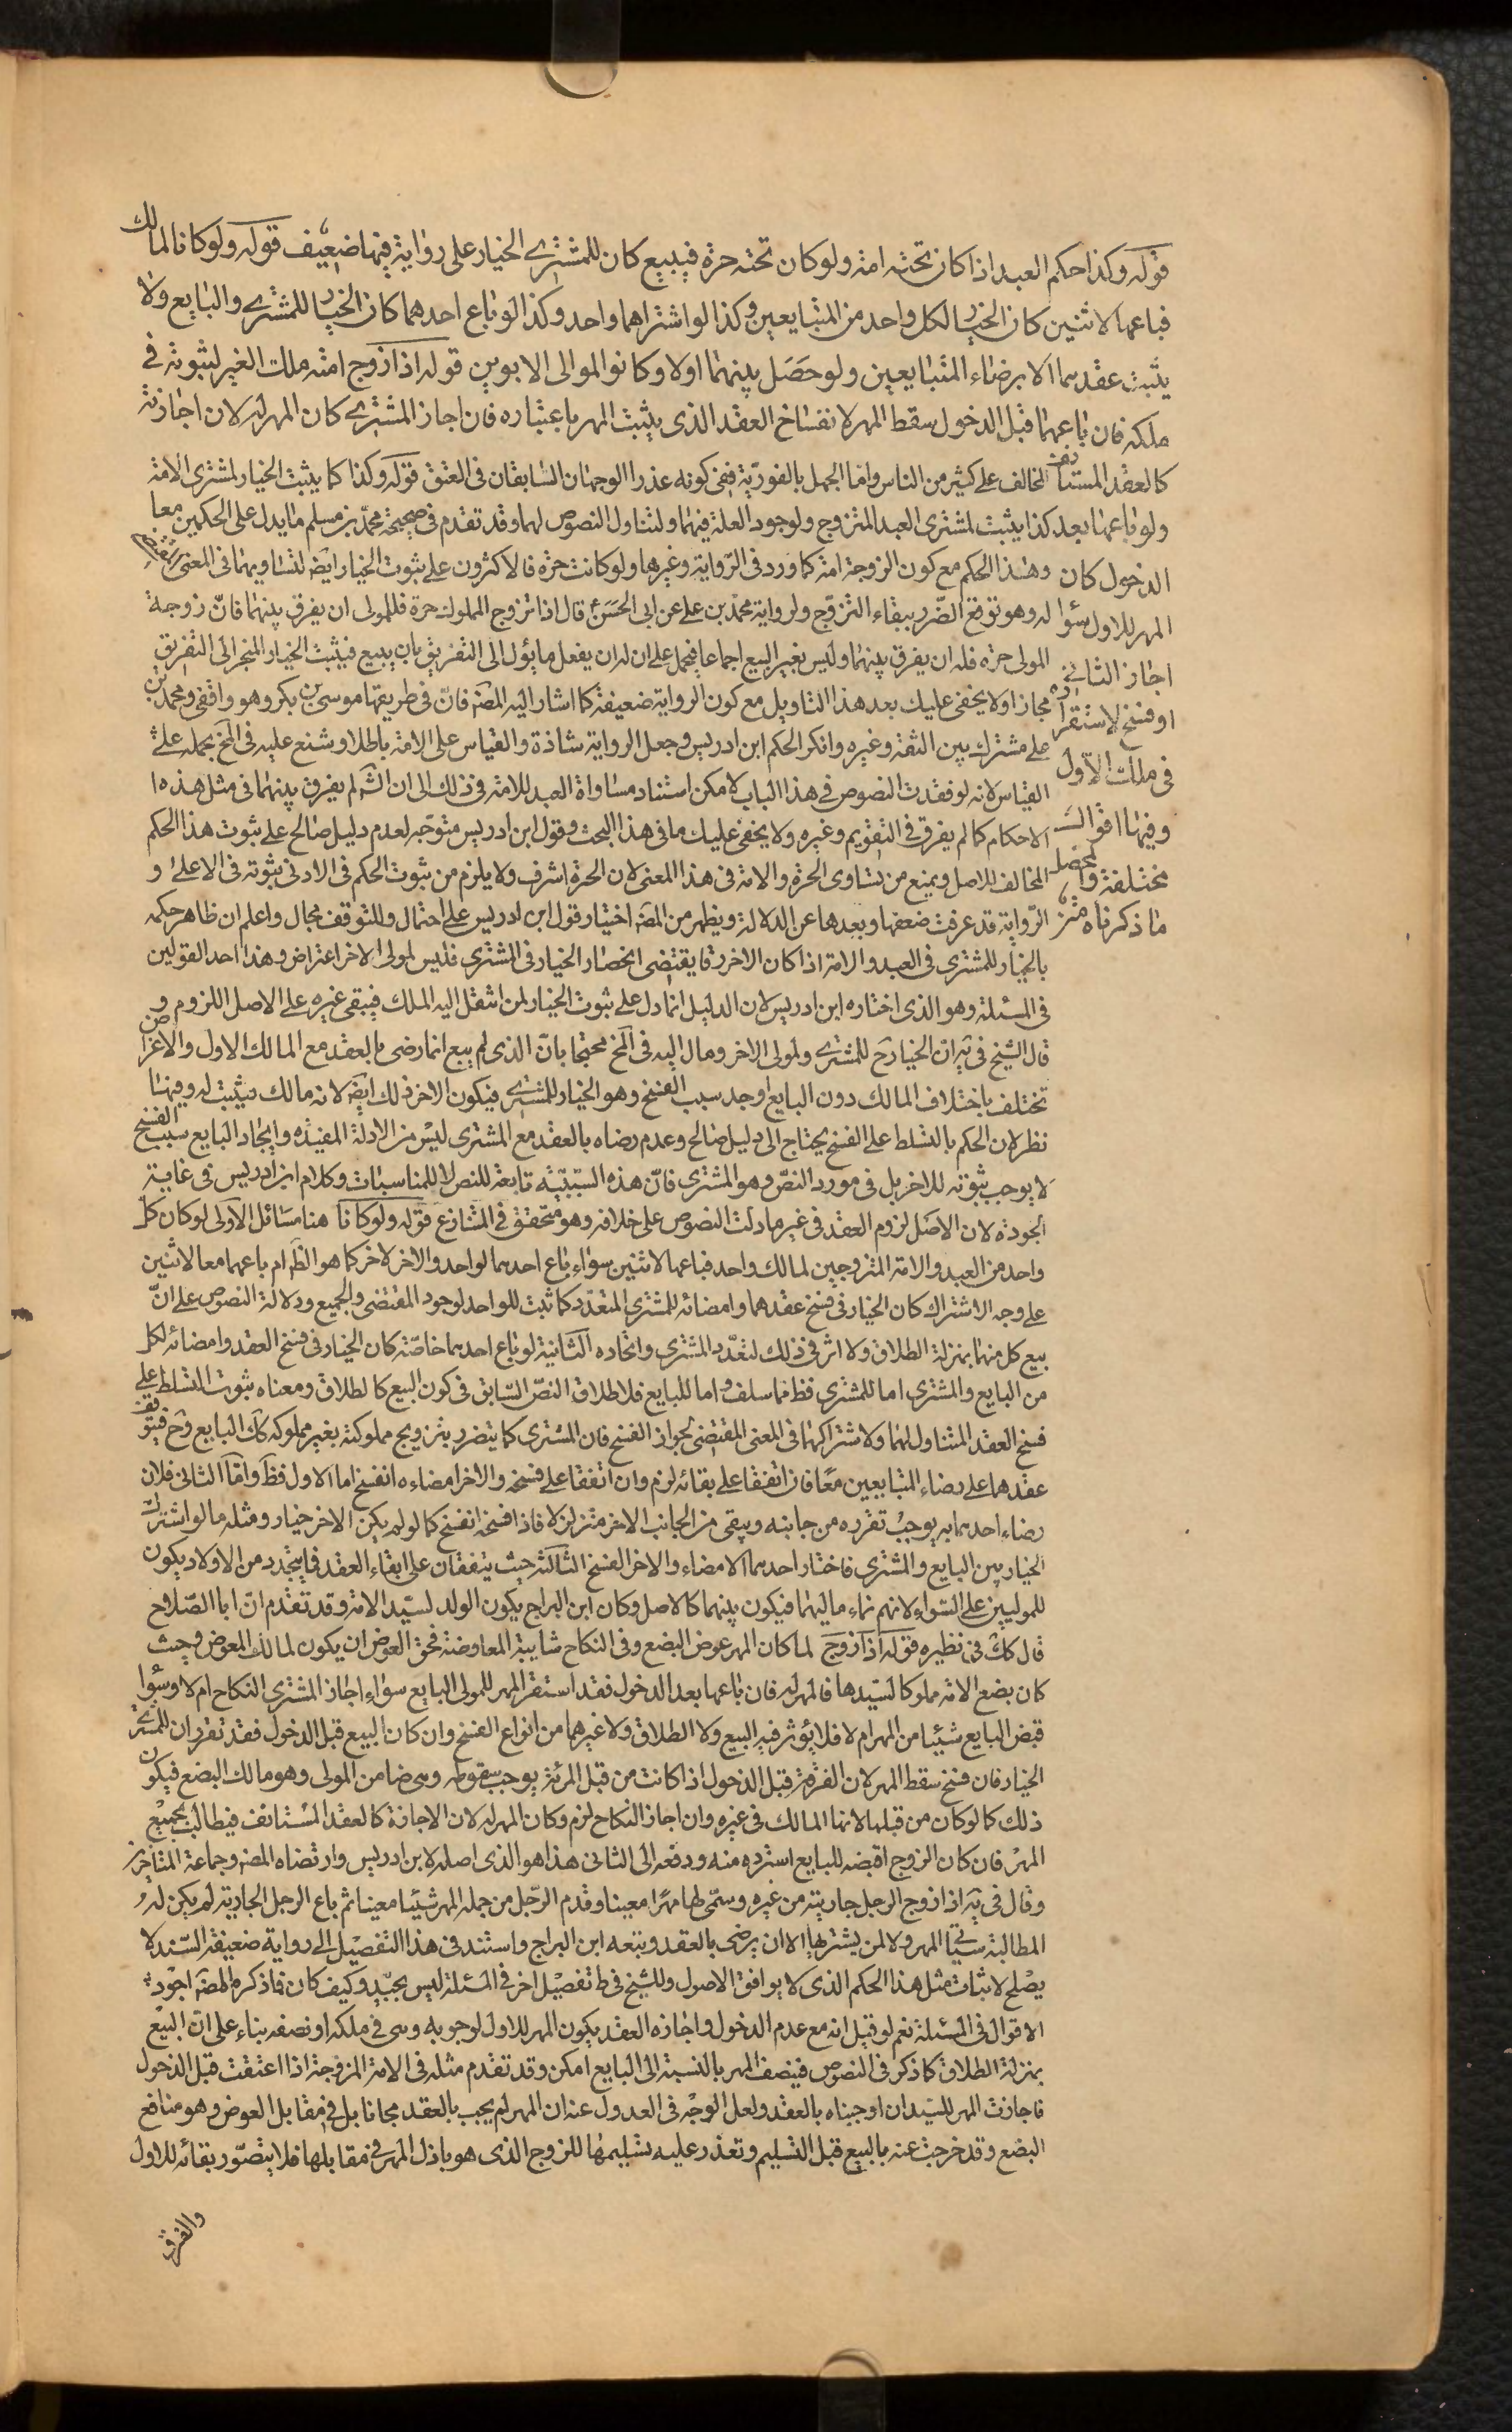 قوله وكذا حكم العبد اذا كان تحته امة ولو كان تحته حرة فبيع كان للمشتري الخيار على رواية فيها ضعيف قوله ولو كانا لمالك
فباعهما لاثنين كان الخيار لكل واحد من المتبايعين وكذا لو اشتراهما واحد وكذا لو باع احدهما كان الخيار للمشتري والبايع ولا
يثبت عقدهما الا برضاء المتبايعين ولو حصل بينهما اولاد كانوا لموالى الابوين قوله اذا زوج امته ملك الغير لثبوته في
ملكه فان باعهما قبل الدخول سقط المهر لانفساخ العقد الذى يثبت المهر باعتباره فان اجاز المشتري كان المهر له لان اجازته
كالعقد المستأنف
ولو باعها بعد
الدخول كان
المهر للاول سواء
اجاز الثاني
او فسخ لاستقراره
في ملك الاول
وفيها اقوال
مختلفة والمحصل
ما ذكرناه متن
المخالف على كثير من الناس واما الجهل بالفورية ففى كونه عذرا الوجهان السابقان فى العتق قوله وكذا كما يثبت الخيار لمشترى الامة
كذا يثبت لمشترى العبد المتزوج ولوجود العلة فيهما ولتناول النصوص لهما وقد تقدم فى صحيحة محمد بن مسلم ما يدل على الحكمين معا
وهذا الحكم مع كون الزوجة امة كما ورد فى الرواية وغيرها ولو كانت حرة فالاكثرون على ثبوت الخيار ايضا لتساويهما فى المعنى
له وهو توقع الضرر ببقاء التزوج ولرواية محمد بن على عن ابى الحسن ع قال اذا تزوج المملوك حرة فللمولى ان يفرق بينهما فان زوجة
المولى حرة فله ان يفرق بينهما وليس بغير البيع اجماعا فيحمل على ان له ان يفعل ما يؤل الى التفريق بان يبيع فيثبت الخيار المنجر الى التفريق
مجازا ولا يخفى عليك بعد هذا التاويل مع كون الرواية ضعيفة كما اشار اليه المصنف فان فى طريقها موسى بن بكر وهو واقفى ومحمد بن
على مشترك بين الثقة وغيره وانكر الحكم ابن ادريس وجعل الرواية شاذة والقياس على الامة باطلا وشنع عليه فى المخ بحمله على
القياس لانه لو فقدت النصوص في هذا الباب لامكن استناد مساواة العبد للامة فى ذلك الى ان الشارع لم يفرق بينهما فى مثل هذه ا
لاحكام كما لم يفرق فى التقويم وغيره ولا يخفى عليك ما فى هذا البحث وقول ابن ادريس متوجه لعدم دليل صالح على ثبوت هذا الحكم
المخالف للاصل ويمنع من تساوى الحرة والامة فى هذا المعنى لان الحرة اشرف ولا يلزم من ثبوت الحكم فى الادنى ثبوته فى الاعلى و
الرواية قد عرفت ضعفها وبعدها عن الدلالة ويظهر من المص اختيار قول ابن ادريس على احتمال وللتوقف مجال واعلم ان ظاهر حكمه
بالخيار للمشترى فى العبد والامة اذا كان الاخر رقا يقتضى انحصار الخيار فى المشترى فليس لمولى الاخر اعتراض وهذا احد القولين
فى المسئلة وهو الذى اختاره ابن ادريس لان الدليل انما دل على ثبوت الخيار لمن انتقل اليه الملك فيبقى غيره على الاصل اللزوم و
قال الشيخ فى يه ان الخيار ح للمشترى ولمولى الاخر ومال اليه فى المخ محتجا بان الذى لم يبع انما رضى بالعقد مع المالك الاول والاغراض
تختلف باختلاف المالك دون البايع اوجد سبب الفسخ وهو الخيار للمشترى فيكون الاخر ذلك ايضا لانه مالك فيثبت له وفيهما
نظر لان الحكم بالتسلط على الفسخ يحتاج الى دليل صالح وعدم رضاه بالعقد مع المشترى ليس من الادلة المفيدة وايجاد البايع سبب الفسخ
لا يوجب ثبوته للاخر بل فى مورد النص وهو المشترى فان هذه السببية تابعة للنص لا للمناسبات وكلام ابن ادريس فى غاية
الجودة لان الاصل لزوم العقد فى غير ما دلت النصوص على خلافه وهو متحقق فى المتنازع قوله ولو كانا هنا مسائل الاولى لو كان كل
واحد من العبد والامة المتزوجين لمالك واحد فباعهما لاثنين سواء باع احدهما لواحد والاخر لاخر كما هو الظ ام باعهما معا لاثنين
على وجه الاشتراك كان الخيار فى فسخ عقدهما وامضائه للمشترى المتعدد كما ثبت للواحد لوجود المقتضى والجميع ودلالة النصوص على ان
بيع كل منهما بمنزلة الطلاق ولا اثر فى ذلك لتعدد المشترى واتحاده الثانية لو باع احدهما خاصة كان الخيار فى فسخ العقد وامضائه لكل
من البايع والمشترى اما للمشترى فظ مما سلف واما للبايع فلاطلاق النص السابق فى كون البيع كالطلاق ومعناه ثبوت التسلط على
فسخ العقد المتناول لهما ولاشتراكهما فى المعنى المقتضى لجواز الفسخ فان المشترى كما يتضرر بتزويج مملوكته بغير مملوكه كك البايع وح فيتوقف
عقدهما على رضاء المتبايعين معا فان اتفقا على بقائه لزم وان اتفقا على فسخه والاخر امضاءه انفسخ اما الاول فظ واما الثانى فلان
رضاء احدهما به يوجب تقرره من جانبه ويبقى من الجانب الاخر متزلزلا فاذا فسخه انفسخ كما لو لم يكن الاخر خيار ومثله ما لو اشترك
الخيار بين البايع والمشترى فاختار احدهما الامضاء والاخر الفسخ الثالثة حيث يتفقان على ابقاء العقد فما يتجدد من الاولاد يكون
للموليين على السواء لانهم نماء ماليهما فيكون بينهما كالاصل وكان ابن البراج يكون الولد لسيد الامة وقد تقدم ان ابا الصلاح
قال كك فى نظيره قوله اذا زوج لما كان المهر عوض البضع وفى النكاح شايبة المعاوضة فحق العوض ان يكون لمالك المعوض وحيث
كان بضع الامة مملوكا لسيدها فالمهر له فان باعها بعد الدخول فقد استقر المهر للمولى البايع سواء اجاز المشترى النكاح ام لا وسواء
قبض البايع شيئا من المهر ام لا فلا يؤثر فيه البيع ولا الطلاق ولا غيرهما من انواع الفسخ وان كان البيع قبل الدخول فقد تقرر ان للمشترى
الخيار فان فسخ سقط المهر لان الفرقة قبل الدخول اذا كانت من قبل المرئة يوجب سقوطه وهى ضامن المولى وهو مالك البضع فيكون
ذلك كما لو كان من قبلها لانها المالك فى غيره وان اجاز النكاح لزم وكان المهر له لان الاجازة كالعقد المستانف فيطالب بجميع
المهر فان كان الزوج اقبضه للبايع استرده منه ودفعه الى الثانى هذا هو الذى اصله لابن ادريس وارتضاه المص وجماعة المتاخرين
وقال فى يه اذا زوج الرجل جاريته من غيره وسمى لها مهرا معينا وقدم الرجل من جملة المهر شيئا معينا ثم باع الرجل الجارية لم يكن له
المطالبة بباقى المهر ولا لمن يشتريها الا ان يرضى بالعقد وتبعه ابن البراج واستند فى هذا التفصيل الى رواية ضعيفة السند لا
يصلح لاثبات مثل هذا الحكم الذى لا يوافق الاصول وللشيخ فى ط تفصيل اخر فى المسئلة ليس بجيد وكيف كان فما ذكره المص اجود
الاقوال فى المسئلة نعم لو قيل انه مع عدم الدخول واجازه العقد يكون المهر للاول لوجوبه وهى فى ملكه او نصفه بناء على ان البيع
بمنزلة الطلاق كما ذكر فى النصوص فينصف المهر بالنسبة الى البايع امكن وقد تقدم مثله فى الامة المزوجة اذا اعتقت قبل الدخول
فاجازت المهر للسيد ان اوجبناه بالعقد ولعل الوجه فى العدول عنه ان المهر لم يجب بالعقد مجانا بل فى مقابل العوض وهو منافع
البضع وقد خرجت عنه بالبيع قبل التسليم وتعذر عليه تسليمها للزوج الذى هو باذل المهر فى مقابلها فلا يتصور بقائه للاول
والفرق